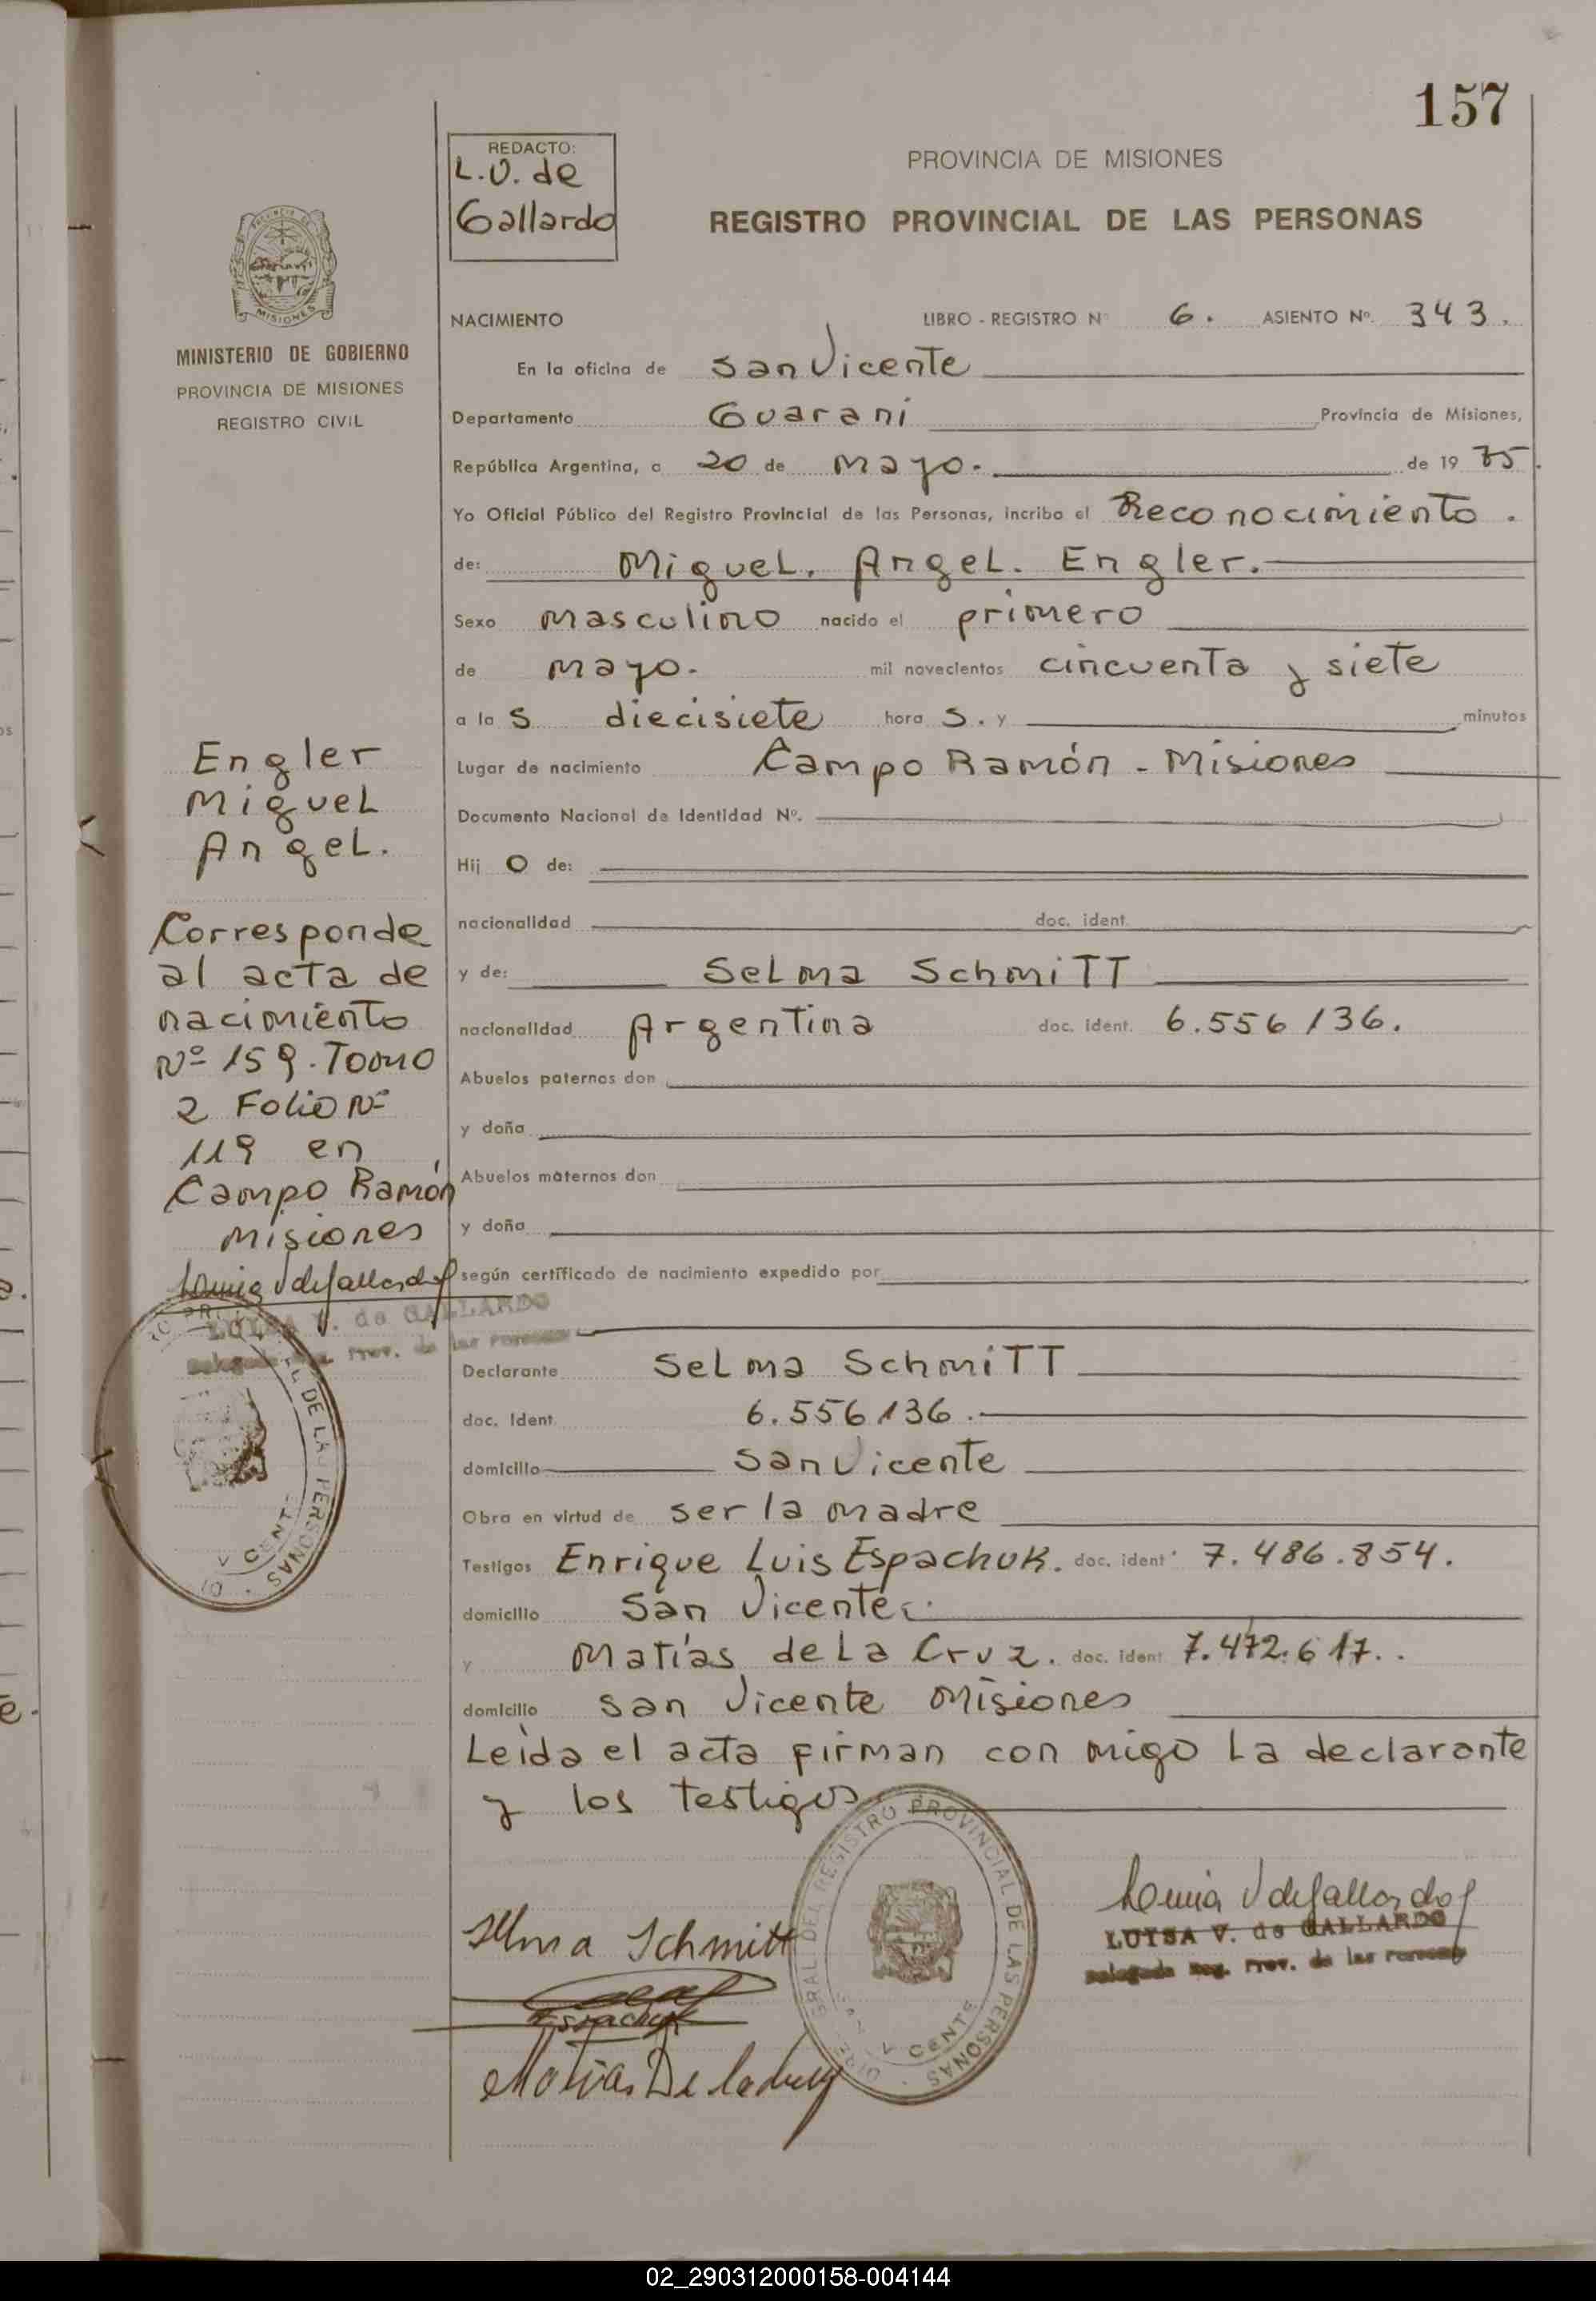 157
REDACTO:
L.V. de
Gallardo
PROVINCIA DE MISIONES
REGISTRO PROVINCIAL DE LAS PERSONAS
MISIONES
MINISTERIO DE GOBIERNO
PROVINCIA DE MISIONES
REGISTRO CIVIL
NACIMIENTO LIBRO - REGISTRO Nº 6. ASIENTO Nº. 343.
En la oficina de San Vicente
Departamento Guarani Provincia de Misiones,
República Argentina, a 20 de Mayo. de 19 75.
Yo Oficial Público del Registro Provincial de las Personas, incribo el Reconocimiento.
de: Miguel. Angel. Engler.
Sexo Masculino nacido el primero
de Mayo. mil novecientos cincuenta y siete
a la s diecisiete hora s. y minutos
Lugar de nacimiento Campo Ramón - Misiones
Documento Nacional de Identidad Nº.
Hij o de:
nacionalidad doc. ident.
y de: Selma Schmitt
nacionalidad Argentina doc. ident. 6.556136.
Abuelos paternos don
y doña
Abuelos maternos don
y doña
según certificado de nacimiento expedido por
Declarante Selma Schmitt
doc. Ident. 6.556136.
domicilio San Vicente
Obra en virtud de ser la madre
Testigos Enrique Luis Espachuk. doc. ident. 7.486.854.
domicilio San Vicente.
y Matías de La Cruz. doc. ident. 7.472.617..
domicilio San Vicente Misiones
Leida el acta firman con migo La declarante
y los testigos
Engler
Miguel
Angel.
Corresponde
al acta de
nacimiento
Nº 159. Tomo
2 Folio Nº
119 en
Campo Ramón
Misiones
Luisa V de Gallardo
LUISA V. de GALLARDO
Delegada Reg. Prov. de las Personas
DE LAS PERSONAS
V CENTE
Selma Schmitt
Espachuk
Matias De la Cruz
DEL REGISTRO PROVINCIAL DE LAS PERSONAS
SAN V CENTE
Luisa V de Gallardo
LUISA V. de GALLARDO
Delegada Reg. Prov. de las Personas
02_290312000158-004144